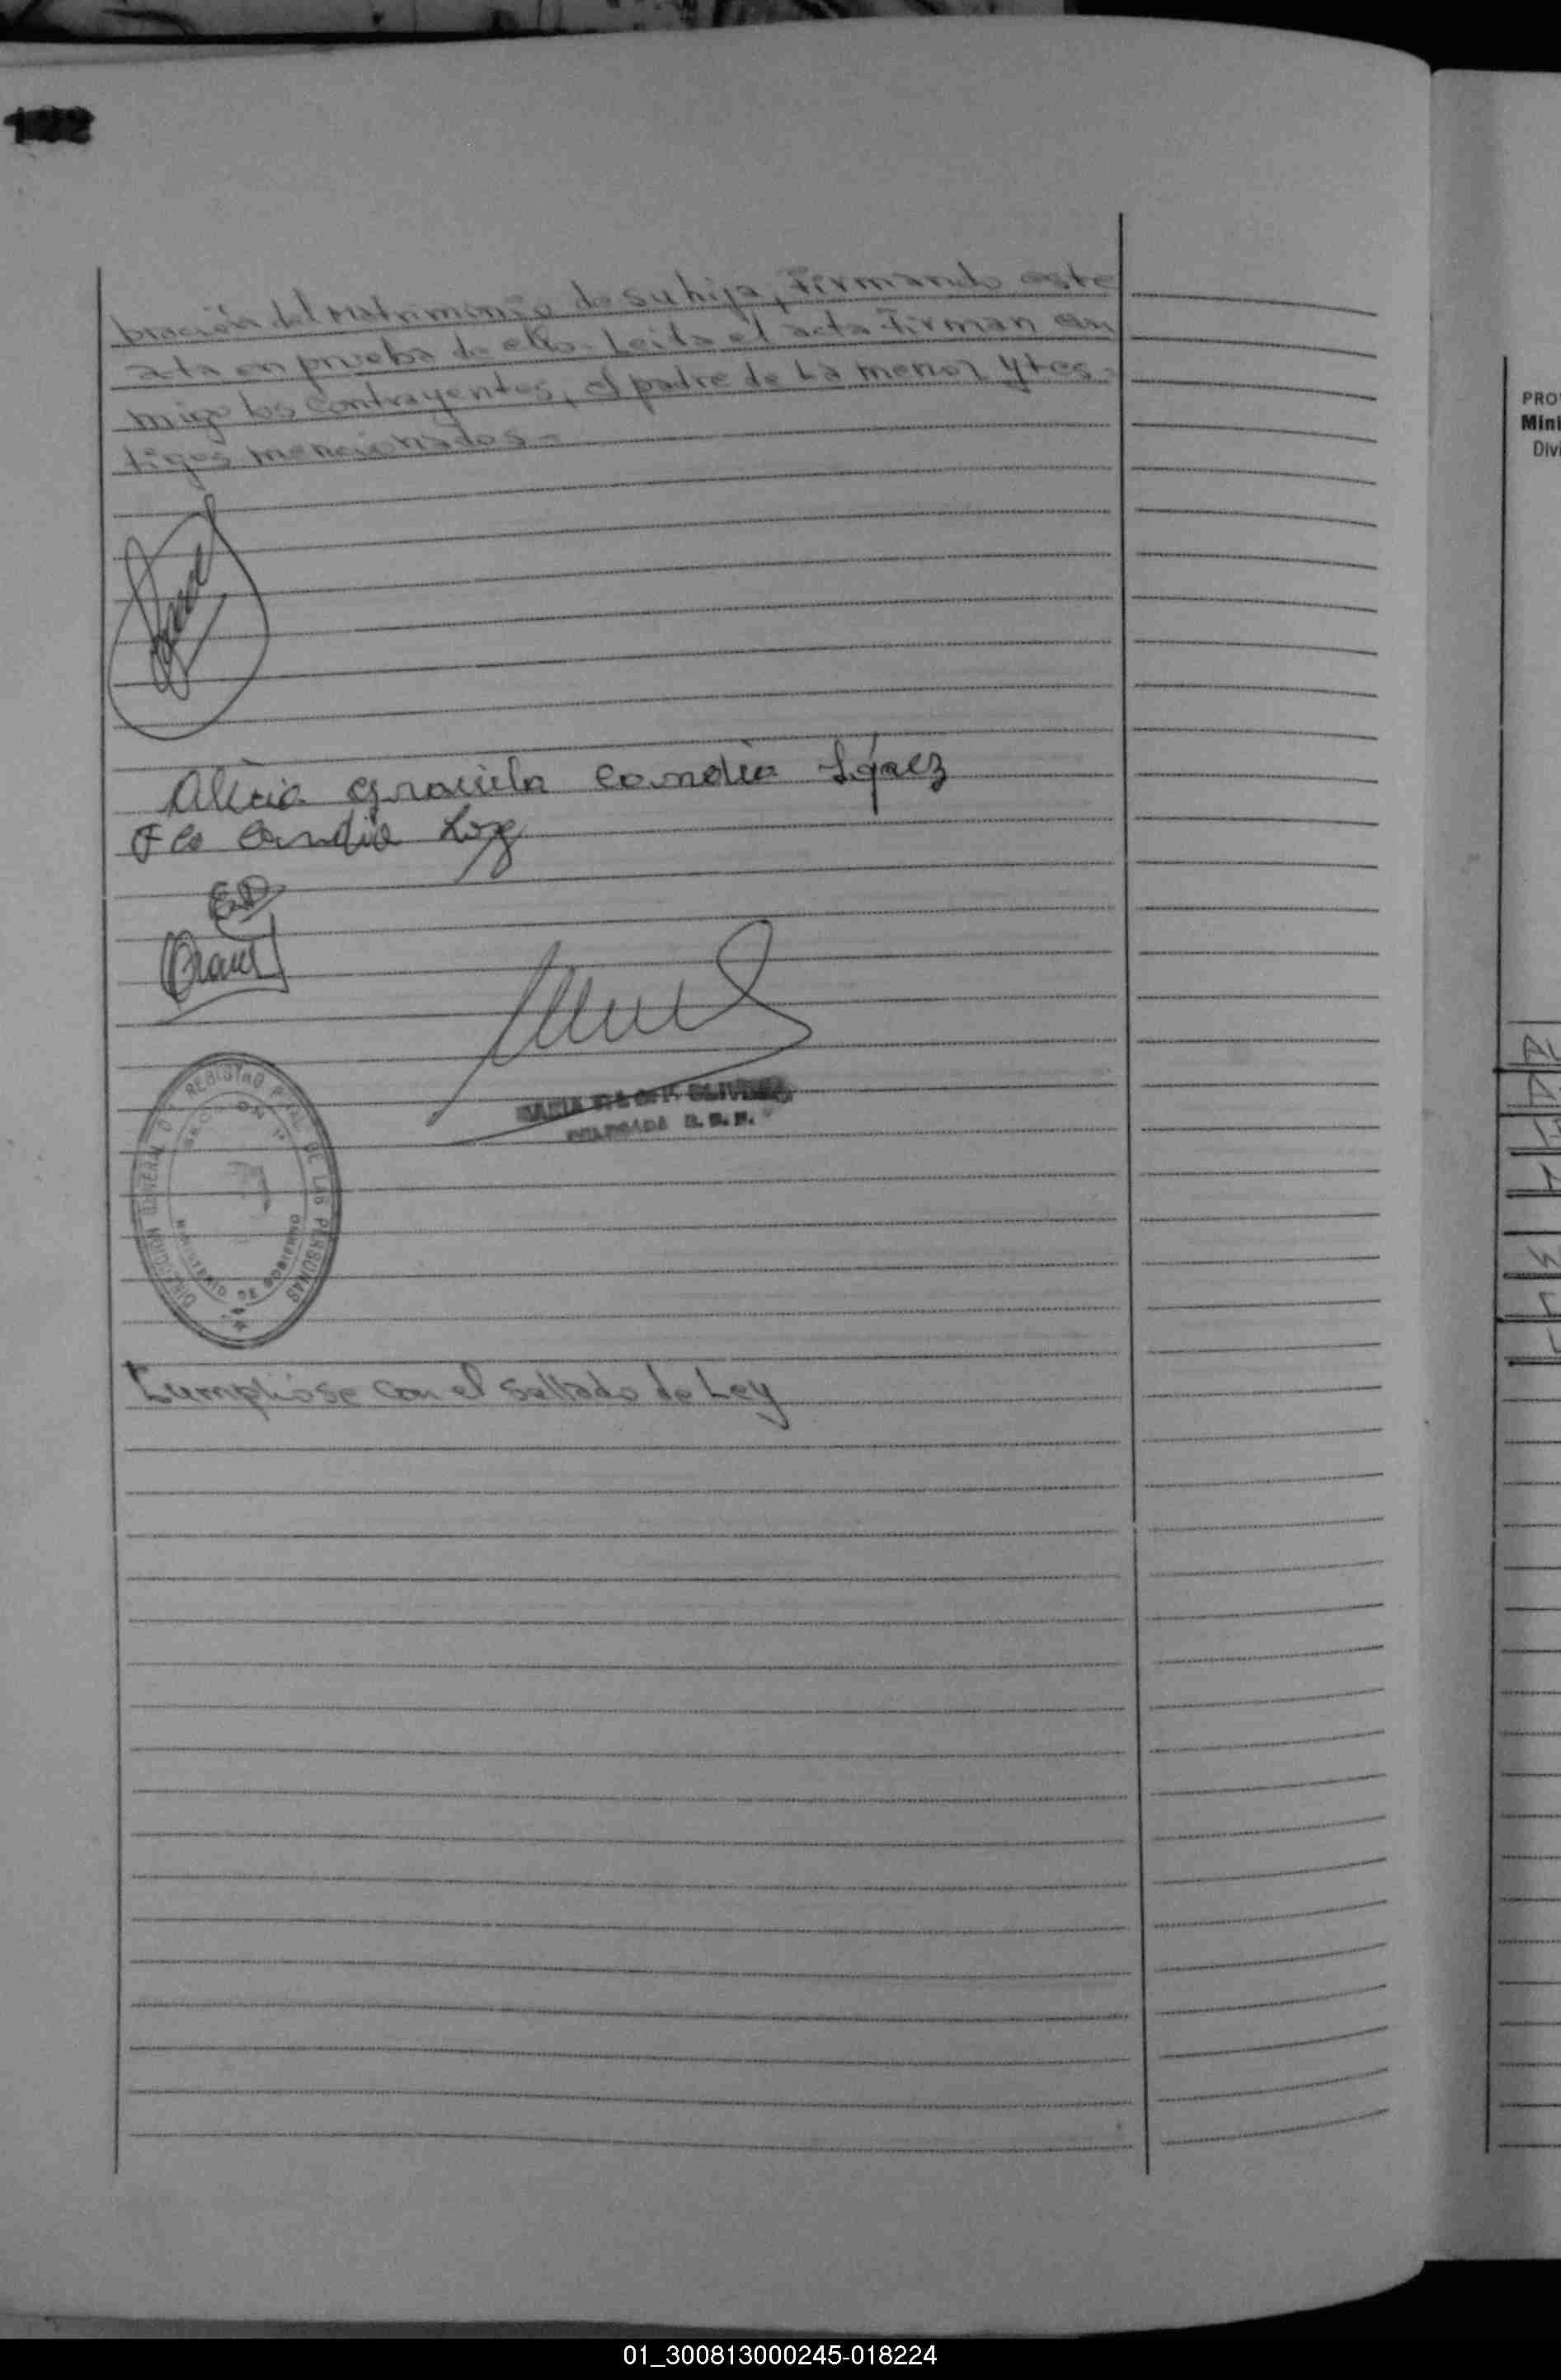 192
bración del Matrimonio de su hija, Firmando este
acta en prueba de ello. Leída el acta Firman con
migo los contrayentes, el padre de la menor y tes-
tigos mencionados-
Alicia Graciela Candia López
Fco Candia
DIRECCION GENERAL DEL REGISTRO DE LAS PERSONAS
MINISTERIO DE GOBIERNO
DELEGADA R. D. P.
Cumplióse con el sellado de Ley
PRO
Mini
Divi
01_300813000245-018224